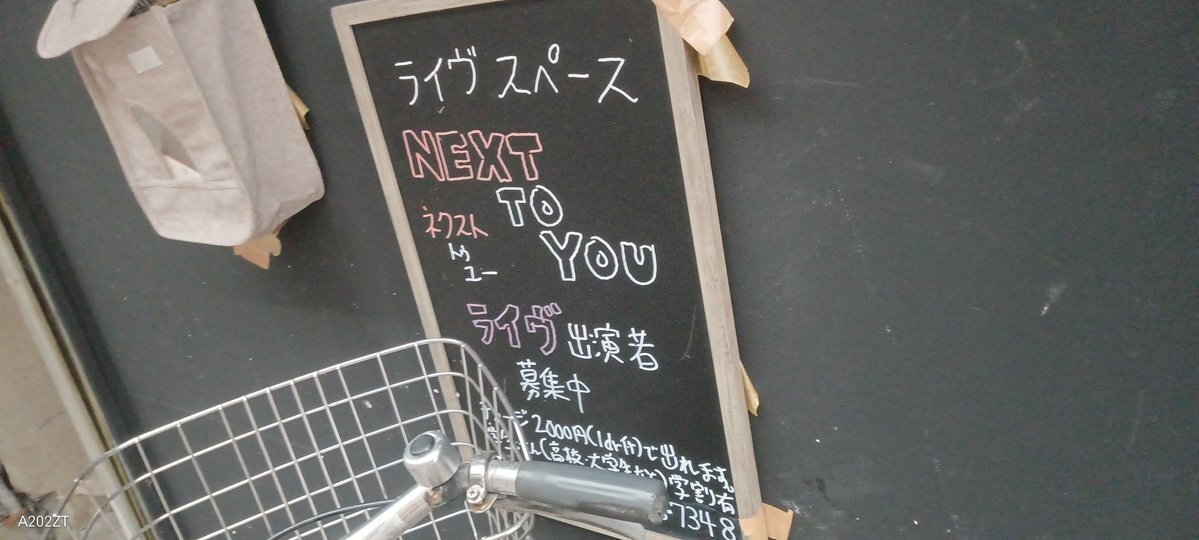 ライヴ スペース
NEXT
TO
YOU
ネクスト
トゥ
ユー
ライヴ 出演者
募集中
チャージ 2000円(1dr付)で出れます。
(高校・大学生など)学割有
7348
A202ZT